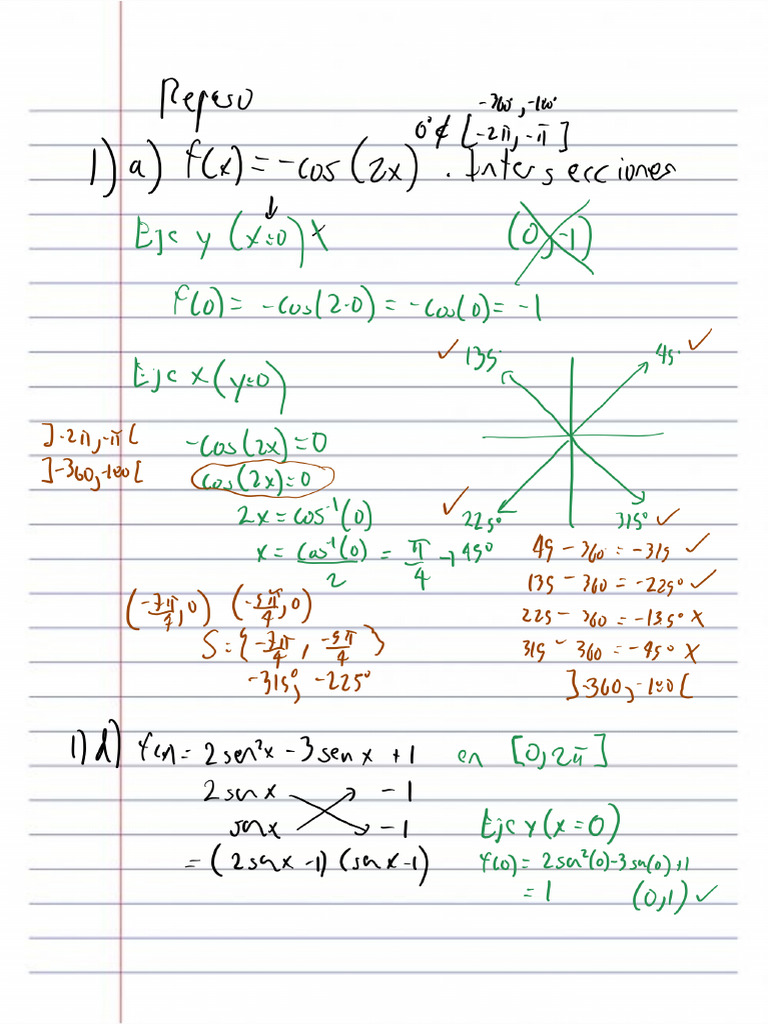 Repaso
-360°, -180°
0° ∉ [-2π, -π]
1) a) f(x) = -cos(2x). Intersecciones
Eje y (x=0) X
(0, -1)
f(0) = -cos(2·0) = -cos(0) = -1
Eje x (y=0)
✓ 135° 45° ✓
]-2π, -π[
]-360, -180[
-cos(2x) = 0
cos(2x) = 0
2x = cos⁻¹(0)
x = cos⁻¹(0)/2 = π/4 → 45°
✓ 225° 315° ✓
45 - 360 = -315 ✓
135 - 360 = -225° ✓
225 - 360 = -135° X
315 - 360 = -45° X
]-360, -180[
(-7π/4, 0) (-5π/4, 0)
S = {-7π/4, -5π/4}
-315°, -225°
1) d) f(x) = 2sen²x - 3senx + 1 en [0, 2π]
2senx -1
senx -1
= (2senx - 1)(senx - 1)
Eje y (x = 0)
f(0) = 2sen²(0) - 3sen(0) + 1
= 1 (0, 1) ✓